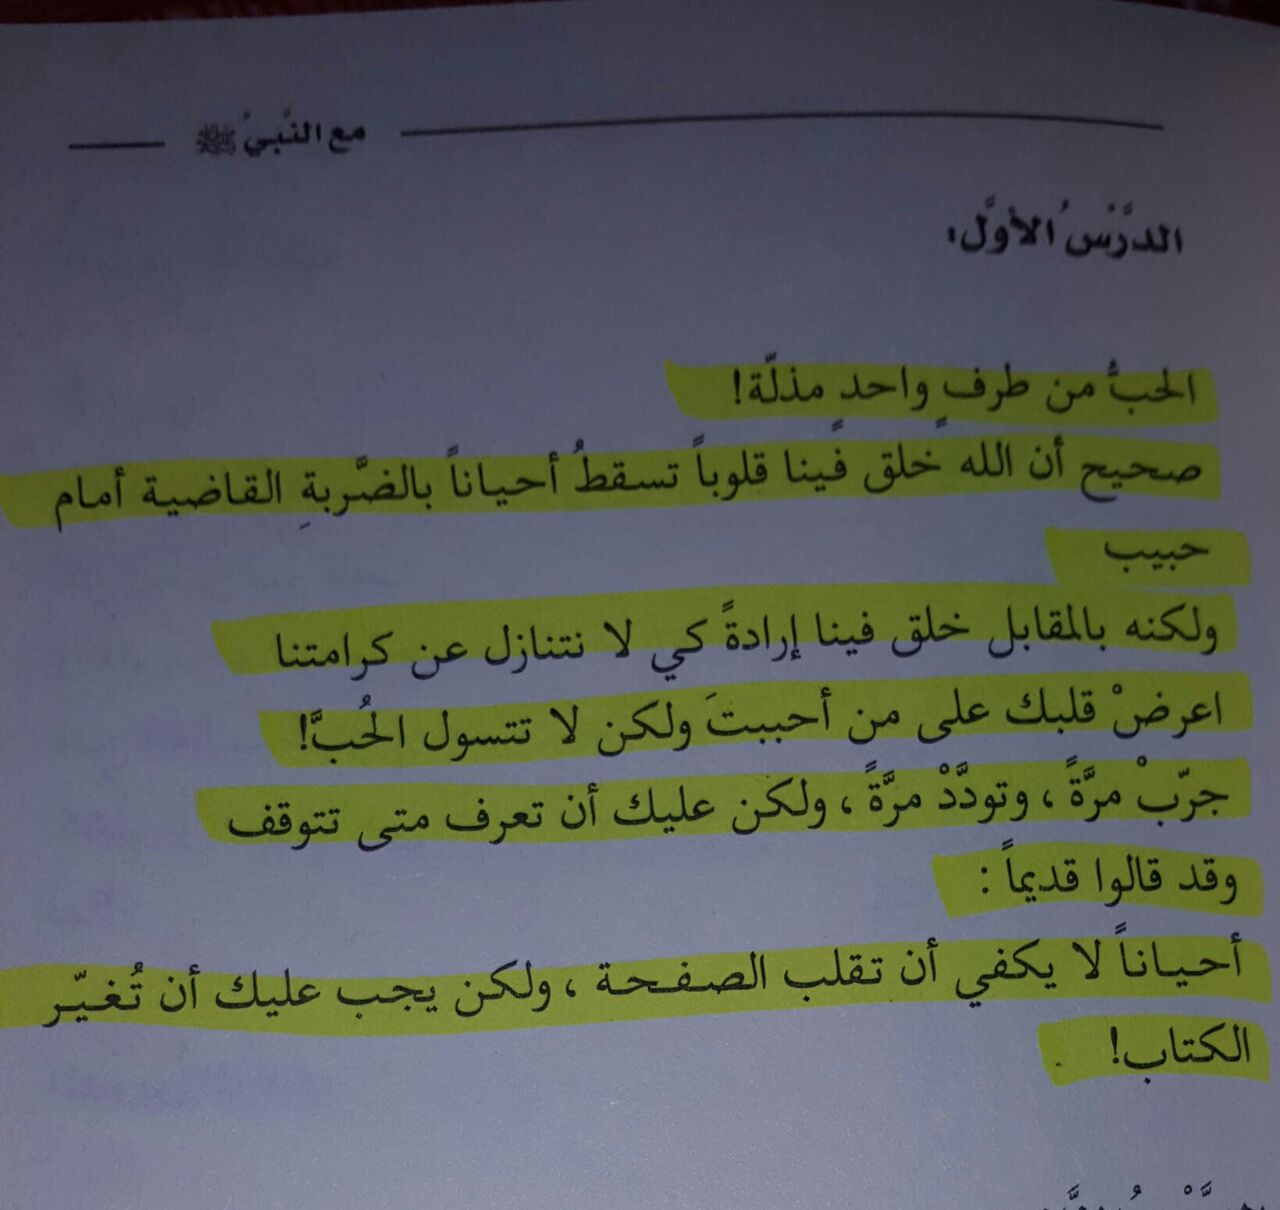 مع النَّبيِّ ﷺ
الدَّرْسُ الأوَّل:
الحبُّ من طرفٍ واحدٍ مذلّة!
صحيح أن الله خلق فينا قلوباً تسقطُ أحياناً بالضَّربةِ القاضيةِ أمام
حبيب
ولكنه بالمقابل خلق فينا إرادةً كي لا نتنازل عن كرامتنا
اعرضْ قلبك على من أحببتَ ولكن لا تتسول الحُبَّ!
جرّبْ مرَّةً ، وتودَّدْ مرَّةً ، ولكن عليك أن تعرف متى تتوقف
وقد قالوا قديماً :
أحياناً لا يكفي أن تقلب الصفحة ، ولكن يجب عليك أن تُغيّر
الكتاب!